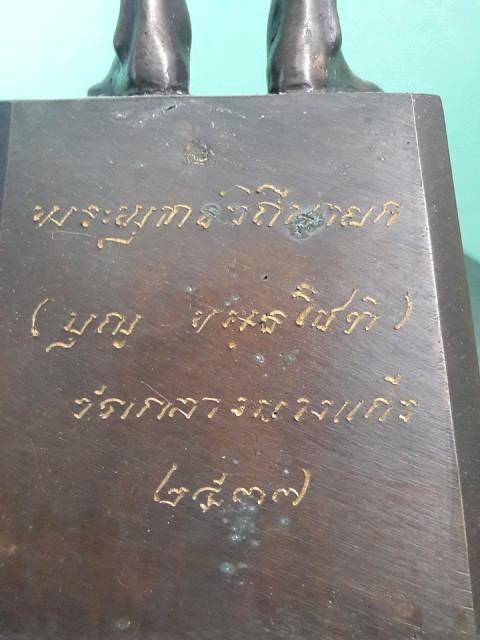 พระพุทธวิถีนายก
(บุญ ขนฺธโชติ)
วัดกลางบางแก้ว
๒๕๓๗